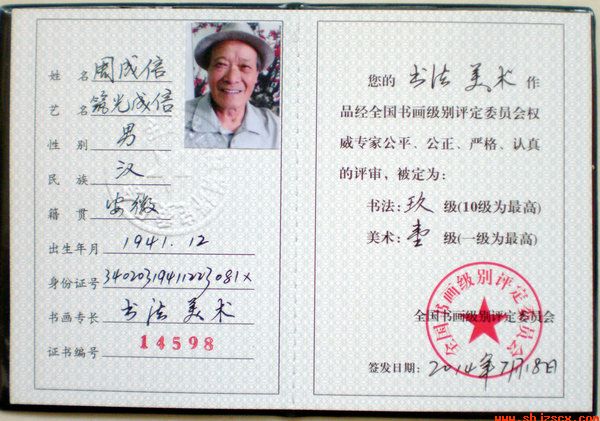 姓 名 周成信
艺 名 筑光成信
性 别 男
民 族 汉
籍 贯 安徽
出生年月 1941.12
身份证号 34020319411223081X
书画专长 书法 美术
证书编号 14598
您的 书法 美术 作
品经全国书画级别评定委员会权
威专家公平、公正、严格、认真
的评审，被定为：
书法：玖 级(10级为最高)
美术：壹 级(一级为最高)
全国书画级别评定委员会
全国书画级别评定委员会
签发日期：2014年7月18日
www.shjzscx.com